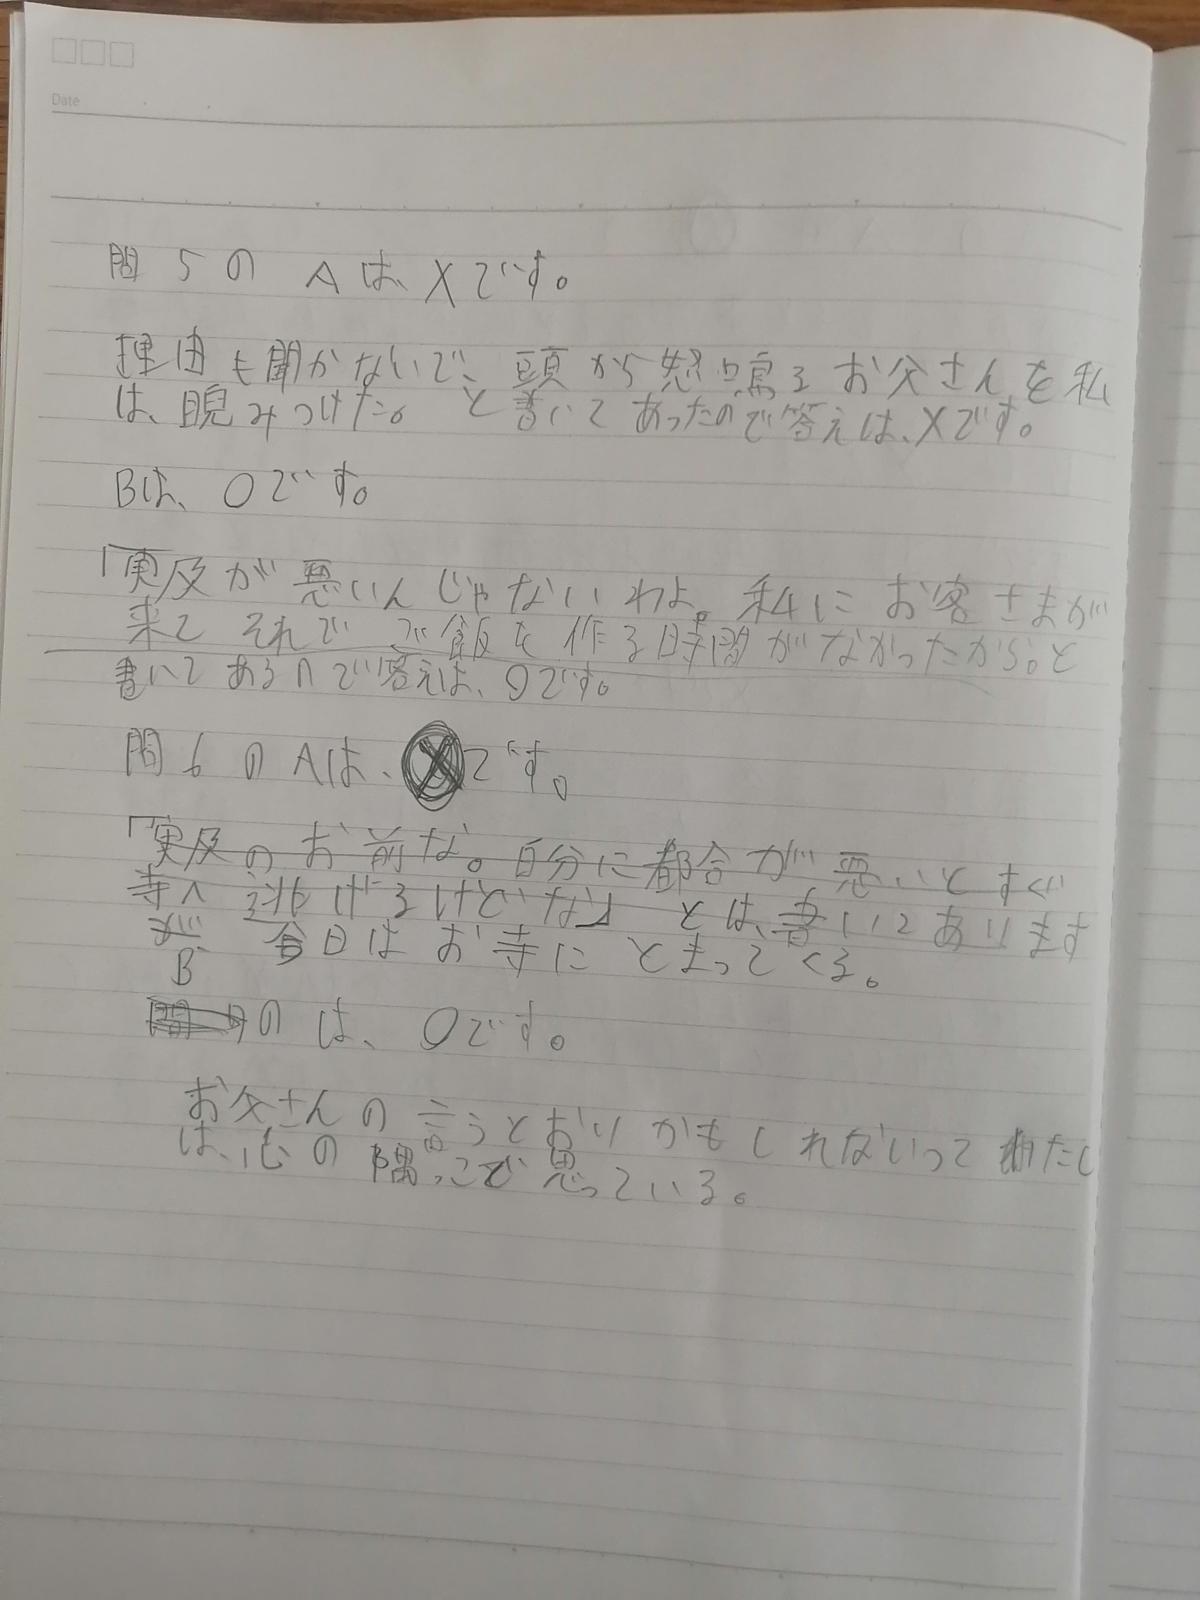 Date
問5の Aは、Xです。
理由も聞かないで、頭から怒鳴るお父さんを私
は、睨みつけた。と書いてあったので答えは、Xです。
Bは、○です。
「実及が悪いんじゃないわよ。私にお客さまが
来て それで ご飯を作る時間がなかったから。と
書いてあるので答えは、○です。
問6の Aは、Xです。
「実及のお前な。自分に都合が悪いとすぐ
寺へ逃げるけどな」とは、書いてあります
が 今日はお寺にとまってくる。
B
のは、○です。
お父さんの言うとおりかもしれないって わたし
は、心の隅っこで思っている。